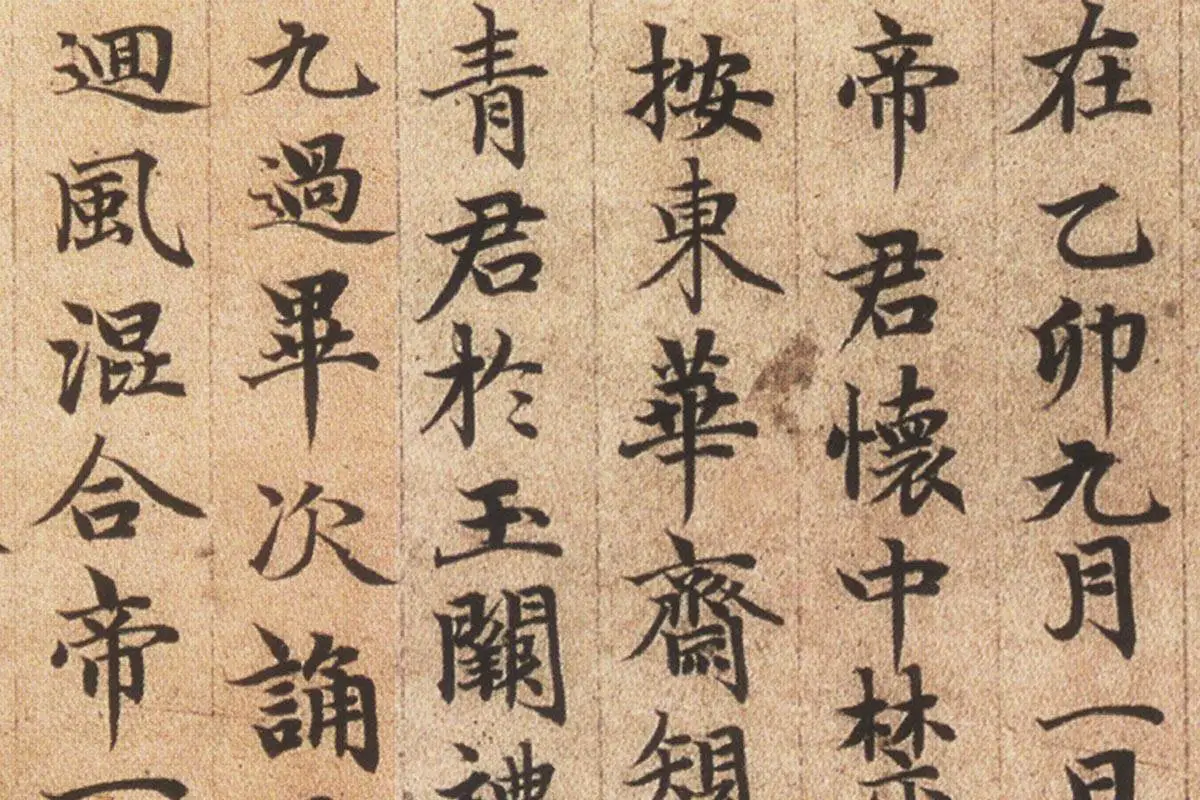 在乙卯九月一日
帝君懷中禁
按東華齋規
青君於玉闕禮
九過畢次誦
迴風混合帝一